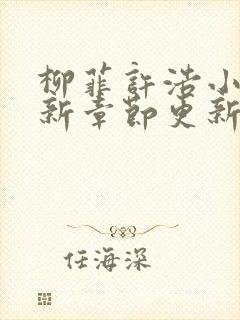 柳菲許浩小
新章節更新
任海深